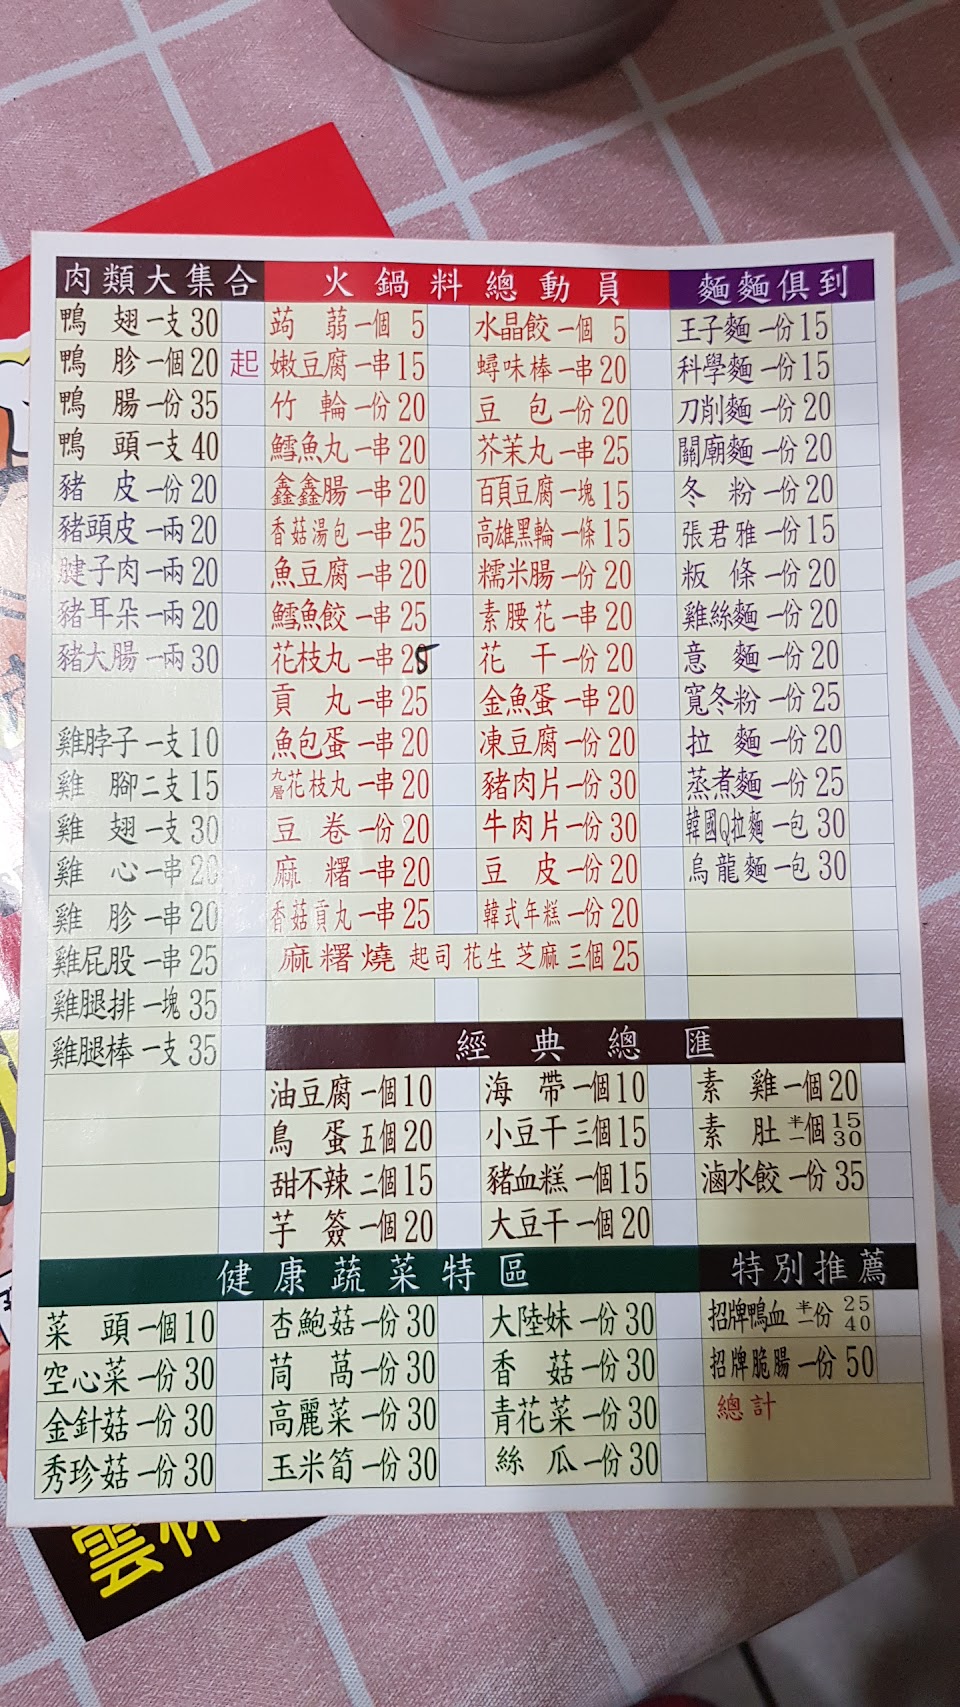 肉類大集合
鴨翅一支30
鴨胗一個20起
鴨腸一份35
鴨頭一支40
豬皮一份20
豬頭皮一兩20
腱子肉一兩20
豬耳朵一兩20
豬大腸一兩30
雞脖子一支10
雞腳二支15
雞翅一支30
雞心一串20
雞胗一串20
雞屁股一串25
雞腿排一塊35
雞腿棒一支35
火鍋料總動員
蒟蒻一個5
嫩豆腐一串15
竹輪一份20
鱈魚丸一串20
鑫鑫腸一串20
香菇湯包一串25
魚豆腐一串20
鱈魚餃一串25
花枝丸一串25
貢丸一串25
魚包蛋一串20
九層花枝丸一串20
豆卷一份20
麻糬一串20
香菇貢丸一串25
水晶餃一個5
蟳味棒一串20
豆包一份20
芥茉丸一串25
百頁豆腐一塊15
高雄黑輪一條15
糯米腸一份20
素腰花一串20
花干一份20
金魚蛋一串20
凍豆腐一份20
豬肉片一份30
牛肉片一份30
豆皮一份20
韓式年糕一份20
麻糬燒 起司 花生 芝麻 三個25
麵麵俱到
王子麵一份15
科學麵一份15
刀削麵一份20
關廟麵一份20
冬粉一份20
張君雅一份15
粄條一份20
雞絲麵一份20
意麵一份20
寬冬粉一份25
拉麵一份20
蒸煮麵一份25
韓國Q拉麵一包30
烏龍麵一包30
經典總匯
油豆腐一個10
鳥蛋五個20
甜不辣二個15
芋簽一個20
海帶一個10
小豆干三個15
豬血糕一個15
大豆干一個20
素雞一個20
素肚半一個15 30
滷水餃一份35
健康蔬菜特區
菜頭一個10
空心菜一份30
金針菇一份30
秀珍菇一份30
杏鮑菇一份30
茼萵一份30
高麗菜一份30
玉米筍一份30
大陸妹一份30
香菇一份30
青花菜一份30
絲瓜一份30
特別推薦
招牌鴨血半一份25 40
招牌脆腸一份50
總計
雲林